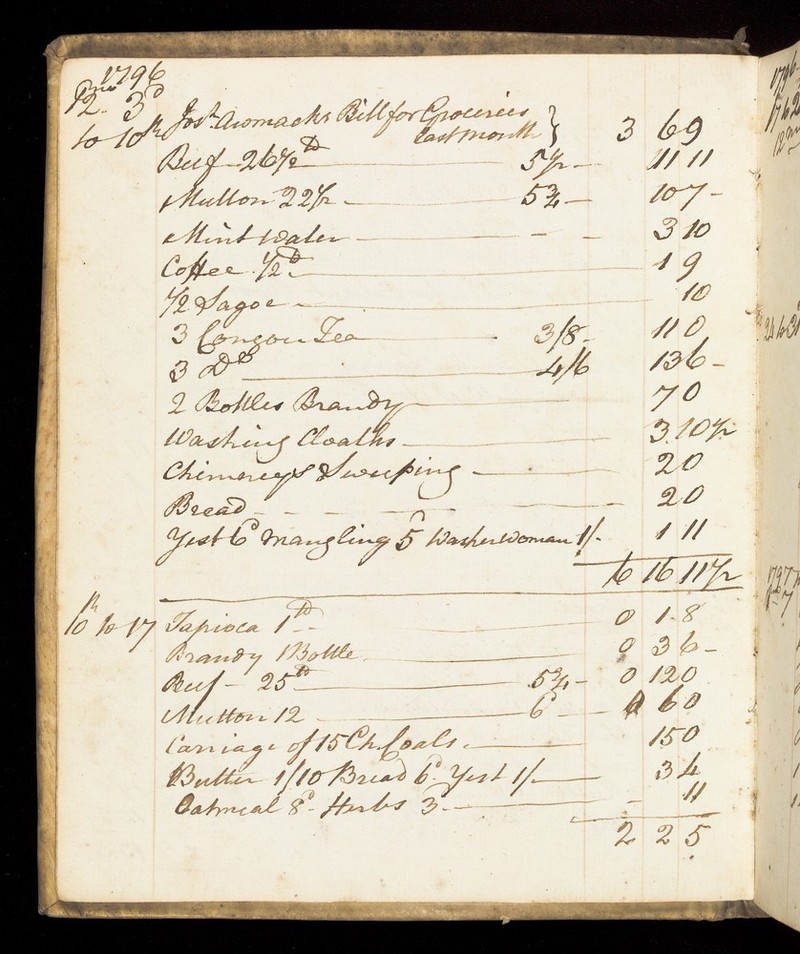 1796
12mo 3d
to 10th Josh. Awmacks Bill for Groceries
Last Month } 3 6 9
Beef 26 1/2 lb 5 1/2 11 11
Mutton 22 1/2 5 3/4 10 7
Mint Water 3 10
Coffee 1/2 lb 1 9
1/2 Sagoe 10
3 Congou Tea 3/8 11 0
3 Do 4/6 13 6
2 Bottles Brandy 7 0
Washing Cloaths 3 10 1/2
Chimneys Sweeping 2 0
Bread 2 0
Yest 6d Mangling 5d Washerwoman 1/- 1 11
6 16 11 1/2
10th to 17 Tapioca 1 lb 0 1 8
Brandy 1 Bottle 0 3 6
Beef 25 lb 5 3/4 0 12 0
Mutton 12 6d 0 6 0
Carriage of 15 Ch. Coals 15 0
Butter 1/10 Bread 6d Yest 1/- 3 4
Oatmeal 8d Herbs 3d 11
2 2 5
1796
1797
24 to 31